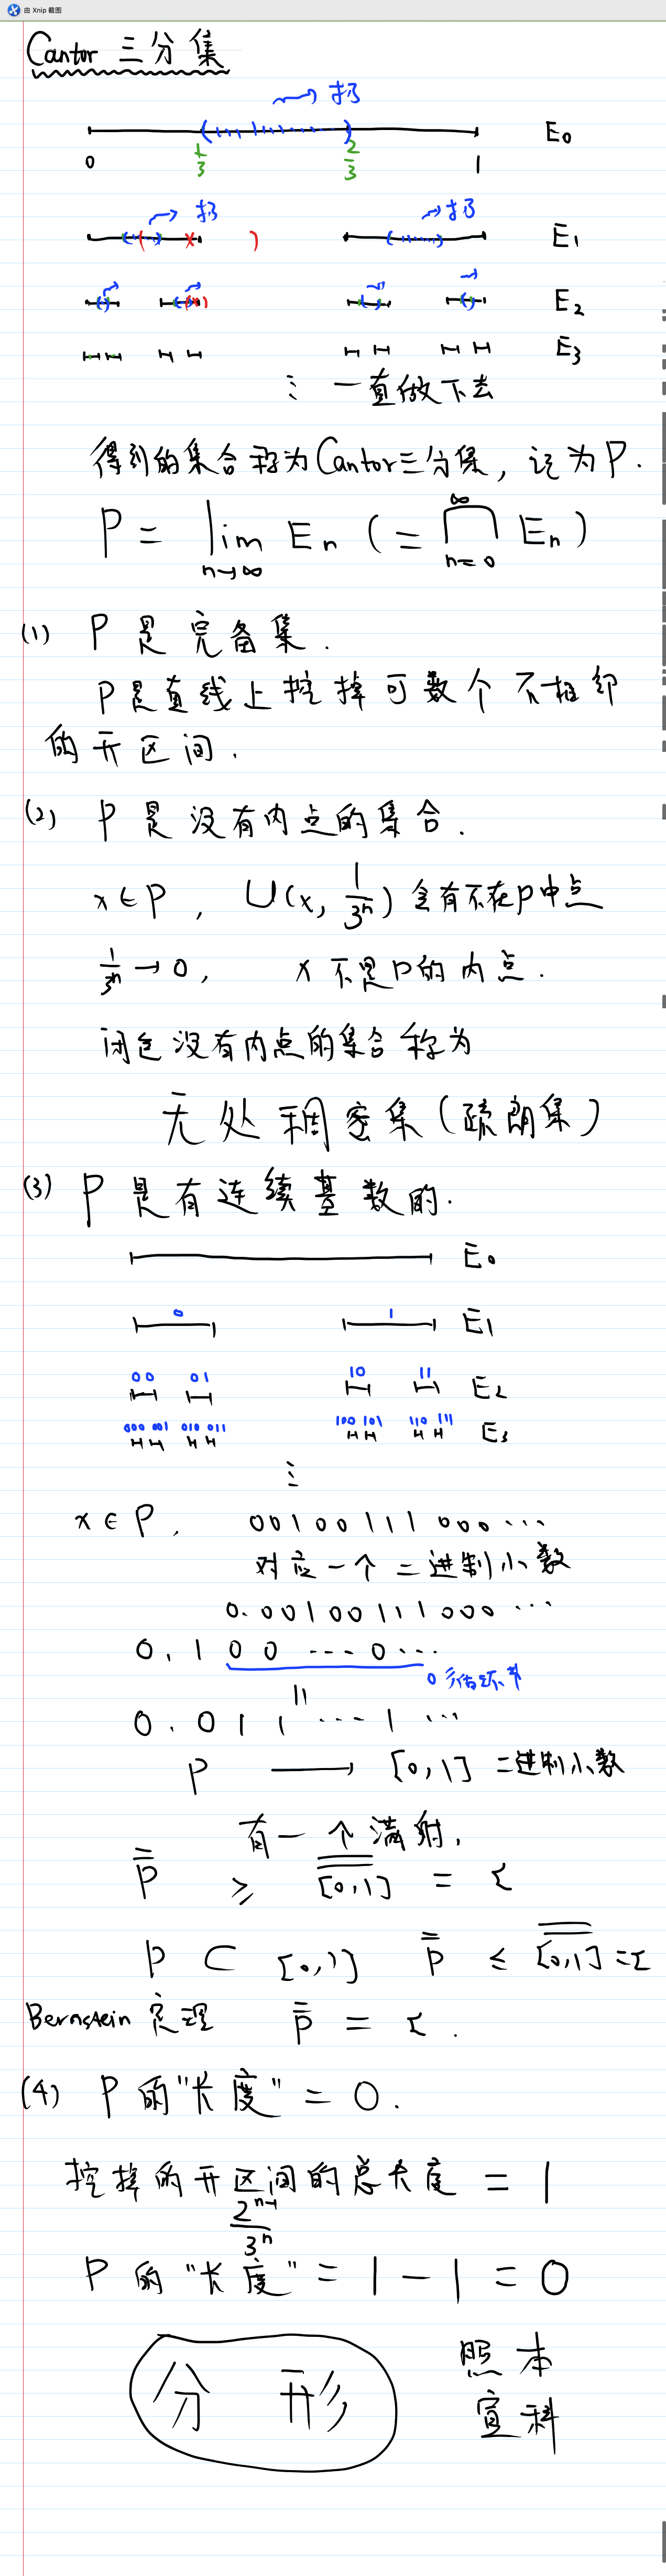 由 Xnip 截图
Cantor 三分集
扔
0 1/3 2/3 1 E₀
扔 扔 E₁
E₂
E₃
⋮ 一直做下去
得到的集合称为Cantor三分集, 记为P.
P = lim_{n→∞} Eₙ ( = ⋂_{n=0}^{∞} Eₙ )
(1) P 是 完备集.
P是直线上挖掉可数个不相邻
的开区间.
(2) P 是没有内点的集合.
x∈P, U(x, 1/3ⁿ) 含有不在P中点
1/3ⁿ → 0, x 不是P的内点.
闭包没有内点的集合称为
无处稠密集(疏朗集)
(3) P 是有连续基数的.
E₀
0 1 E₁
00 01 10 11 E₂
000 001 010 011 100 101 110 111 E₃
⋮
x∈P, 00100111000...
对应一个二进制小数
0.00100111000...
0.100...0...
0
=
0.011...1...
P → [0,1] 二进制小数
有一个满射,
P̿ ≥ [0,1]̿ = c
P ⊂ [0,1] P̿ ≤ [0,1]̿ = c
Bernstein 定理 P̿ = c.
(4) P 的"长度" = 0.
挖掉的开区间的总长度 = 1
2ⁿ⁻¹/3ⁿ
P 的 "长度" = 1 - 1 = 0
分 形
照本
宣科